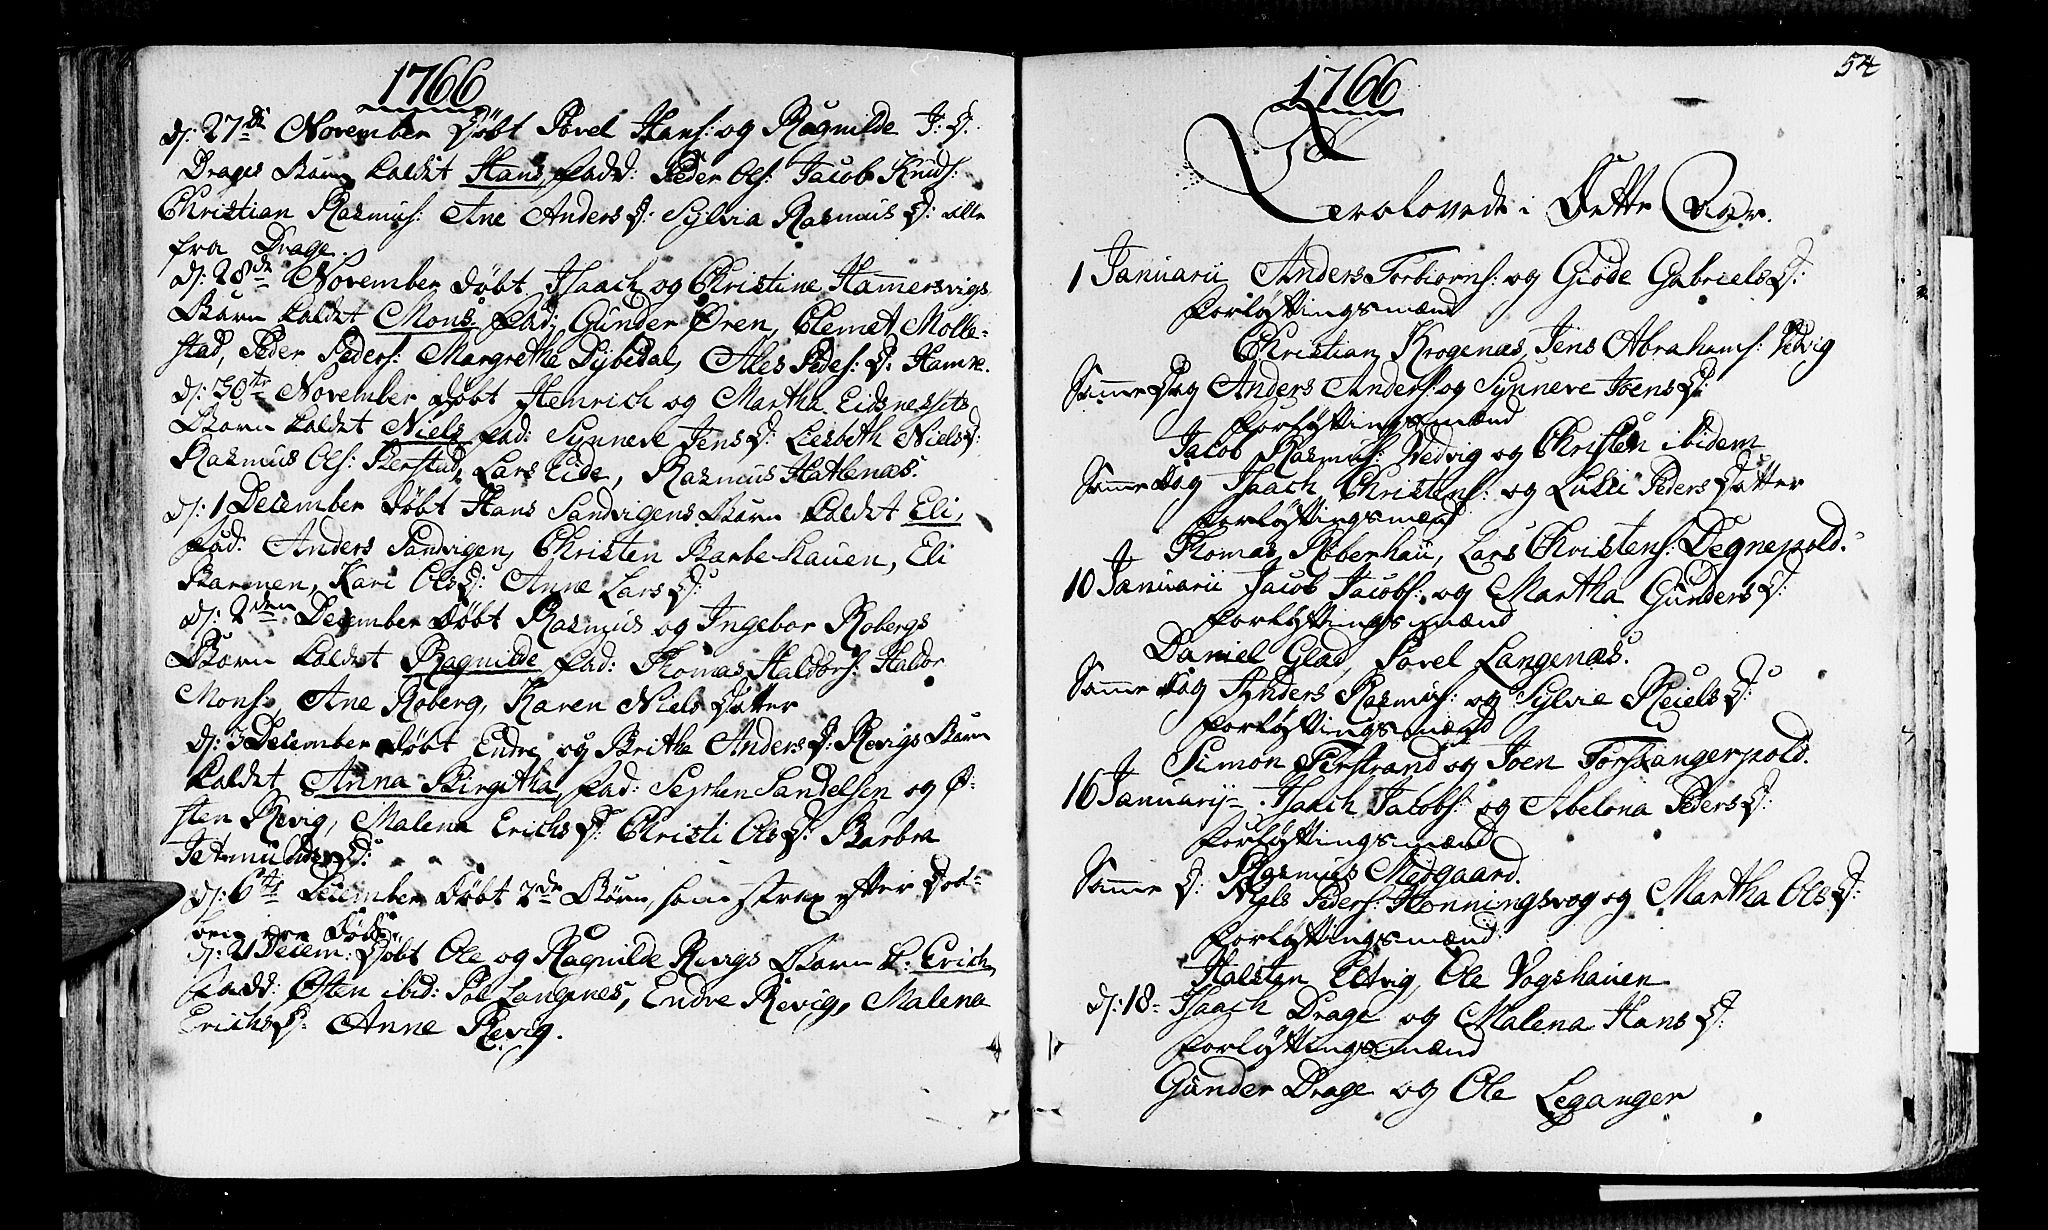 1766
d: 27de November Døbt Povel Hans: og Ragnilde J: D:
Drages Barn kaldet Hans, fadd: Peder Ols: Jacob Knuds:
Christian Rasmus: Ane Anders D: Sylvia Rasmus D: alle
fra Drage.
d: 28de November døbt Isaach og Christine Hamersvigs
Barn kaldet Mons fad: Gunder Øren, Clemet Molle-
stad, Peder Peders: Margretha Dybedal, Ales Peders: D: Hamre.
d: 30te November døbt Henrich og Martha Eidsnessets
Barn kaldet Niels fad: Synneve Jens D: Lisbeth Niels D:
Rasmus Ols: Berstad, Lars Eide, Rasmus Hatlenæs.
d: 1 December døbt Hans Sandvigens Barn kaldet Eli,
fad: Anders Sandvigen, Christen Barbe-Hauen, Eli
Barmen, Kari Ols D: Anne Lars D:
d: 2den December døbt Rasmus og Ingebor Robergs
Barn kaldet Ragnilde fad: Thomas Haldors: Haldor
Mons:, Ane Roberg, Karen Niels Datter
d: 3 December døbt Endre og Britha Anders D: Revigs Barn
kaldet Anna Birgitha, fad: Sephen Sandelsen og Ø-
sten Revig, Malena Erichs D: Christi Ols D: Barbra
Jetmunds D:
d: 6te December døbt 2de Børn, som strax efter Daa-
ben
d: 21 Decem: Døbt Ole og Ragnilde Revigs Barn k: Erich
fadd: Østen ibid: Pol Langenes, Endre Revig, Malena
Erichs D: Anne Revig.
54
1766
Trolovede i Dette Aar.
1 Januarii Anders Torbiorns: og Giøde Gabriels D:
Forløftningsmænd
Christian Krogenæs, Jens Abrahams: Vedvig
Samme Dag Anders Anders: og Synneve Joens D:
Forløftningsmænd
Jacob Rasmus: Vedvig og Christen ibidem
Samme Dag Isaach Christens: og Lulli Peders Datter
Forløftningsmænd
Thomas Raberhau, Lars Christens: Degnepold.
10 Januarii Jacob Jacobs: og Martha Gunders D:
Forløftningsmænd
Daniel Glad, Povel Langenæs.
Samme Dag Anders Rasmus: og Sylvie Reiels D:
Forløftningsmænd
Simon Ferstrand og Joen Torskangerpold.
16 Januarij Isaach Jacobs: og Abelona Peders D:
Forløftningsmænd
Rasmus Medgaard.
Samme D: Niels Peders: Honningsvog og Martha Ols D:
Forløftningsmænd
Halsten Eltvig, Ole Vogshauen
d: 18 Isaach Drage og Malena Hans D:
Forløftningsmænd
Gunder Drage og Ole Leganger